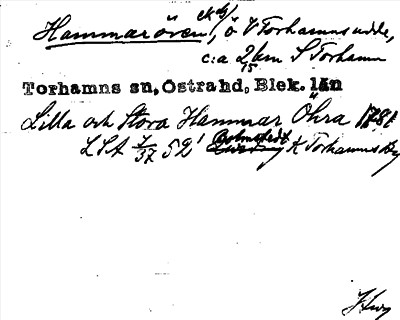 Hammarören, ö V Torhamnsudde,
c:a 2 km S Torhamn
15
Torhamns sn, Östrahd, Blek. län
Lilla och Stora Hammar Öhra 1781
LSA 7/37 52' Bolmstedt K Torhamns By